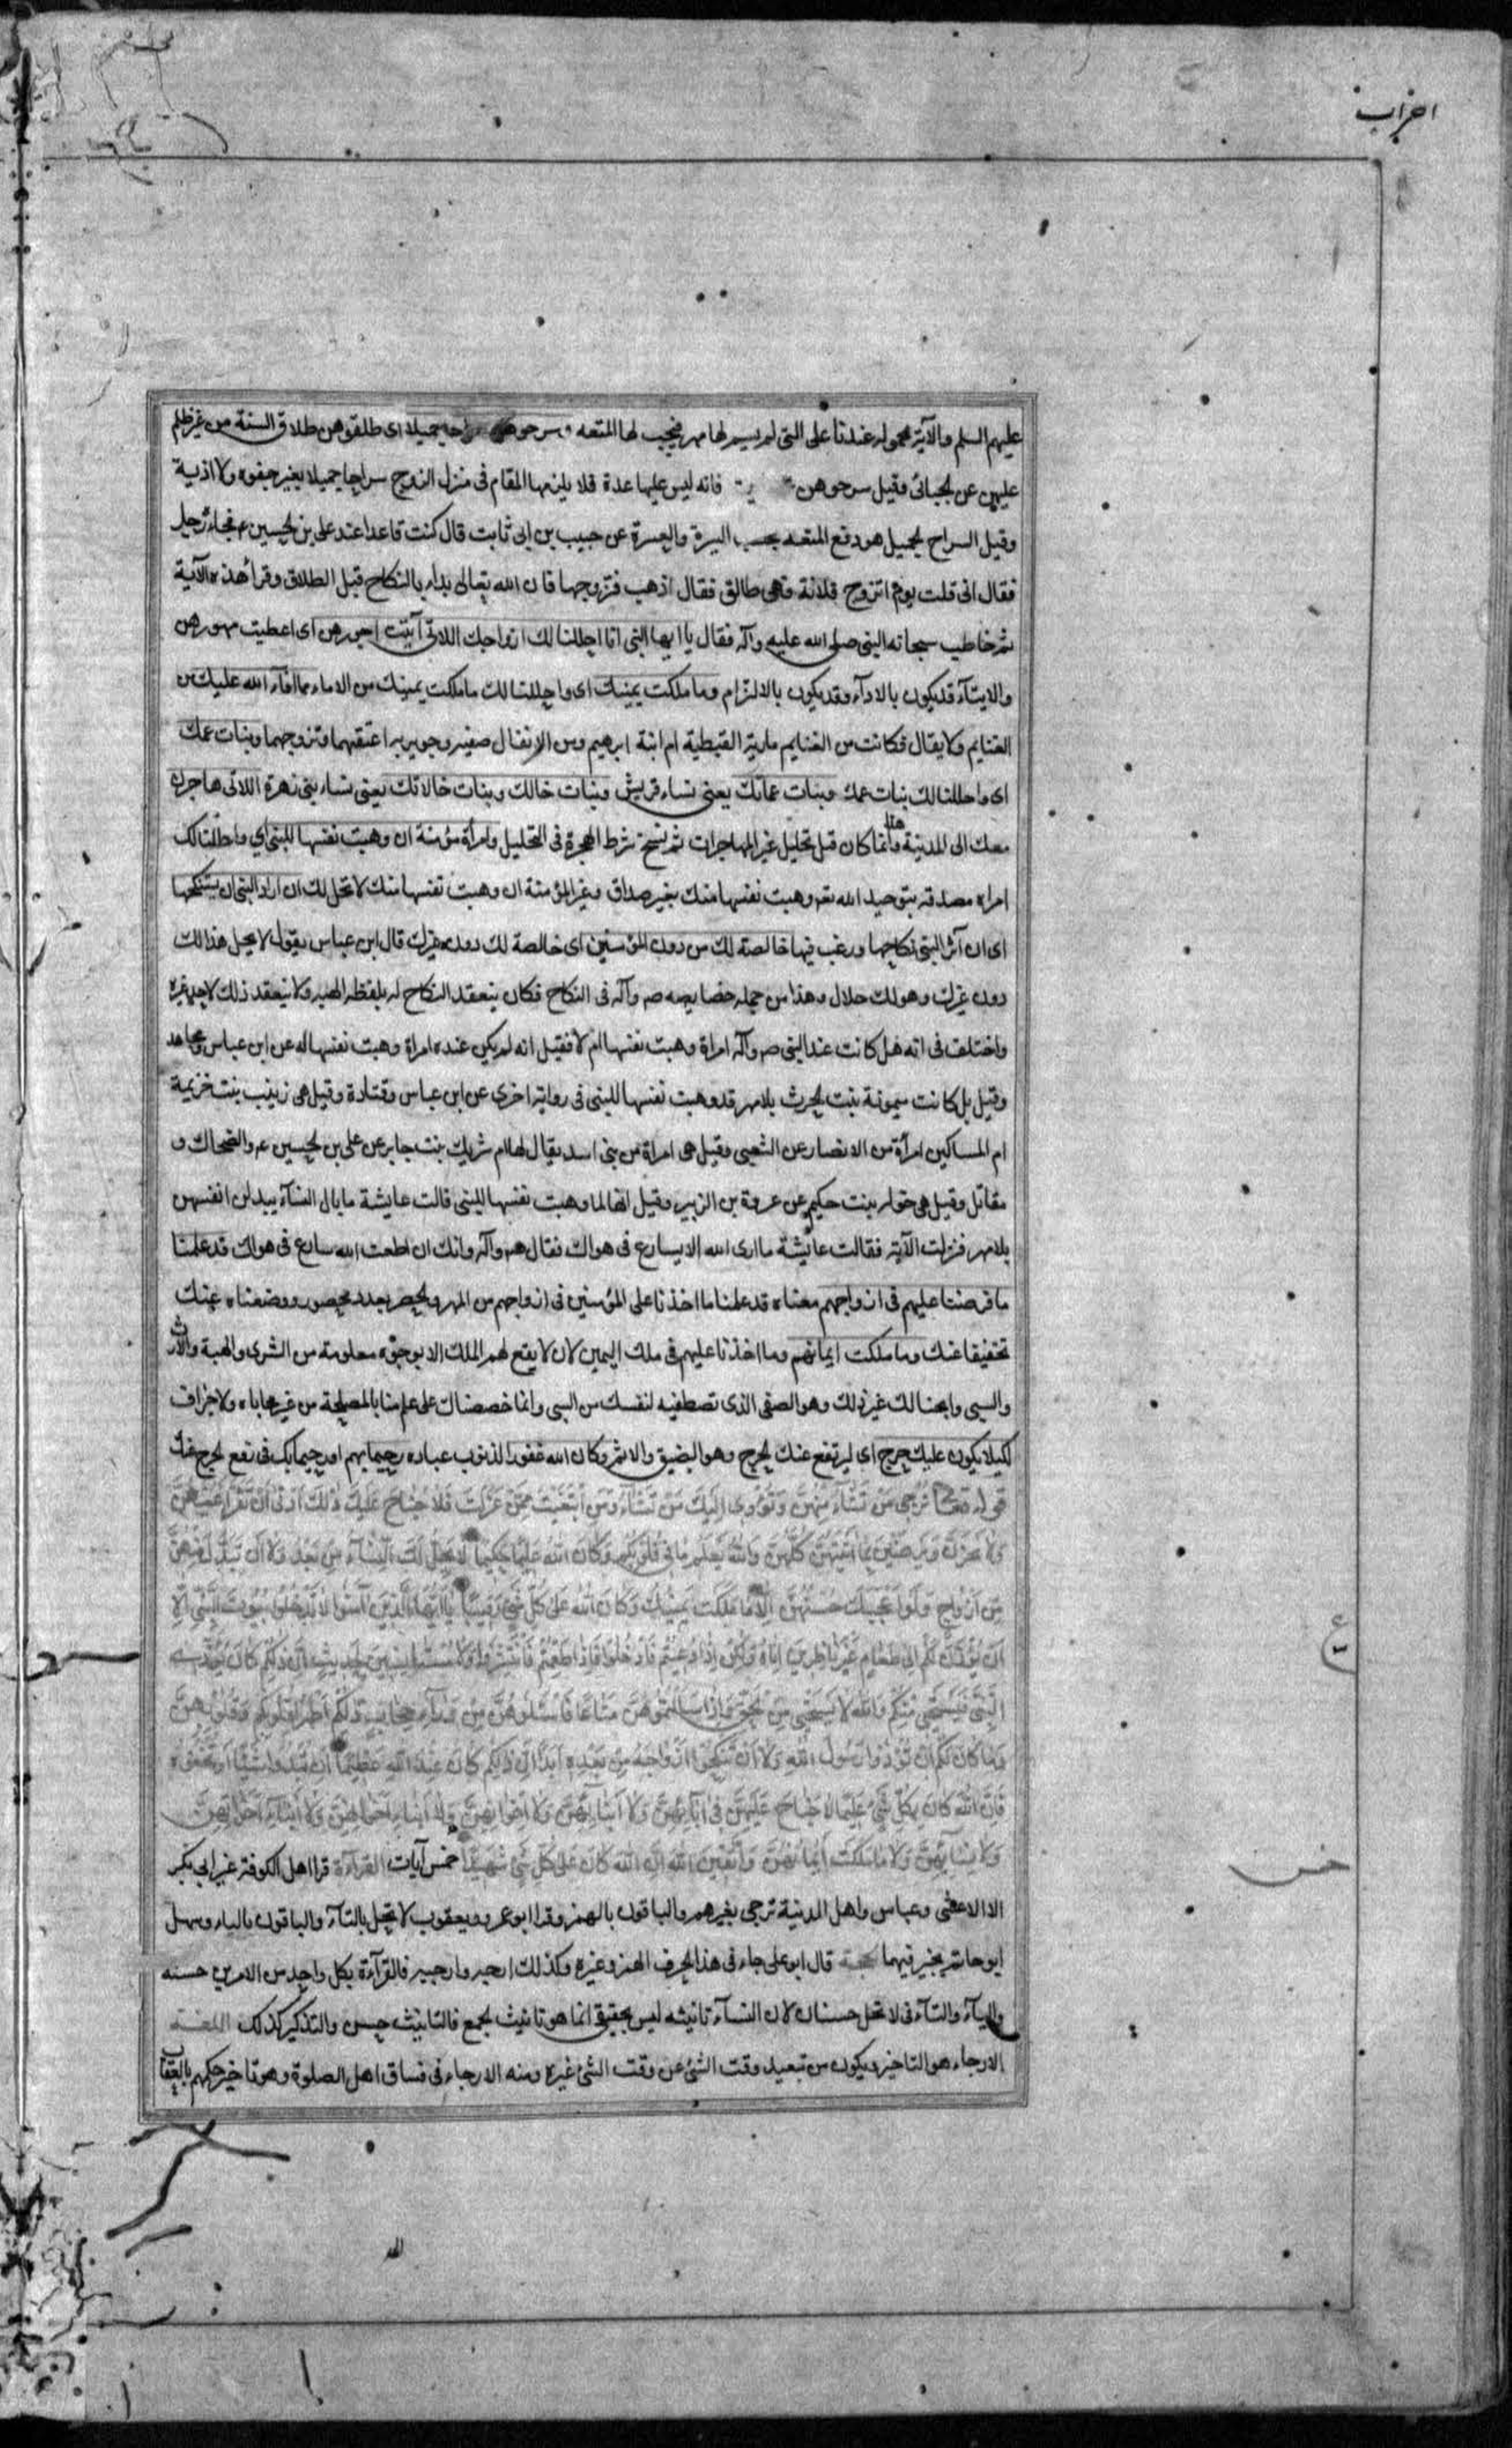 احزاب
عليهم السلم والآية محمولة عندنا على التى لم يسم لها مهر فيجب لها المتعه وسرحوهن سراحا جميلا اى طلقوهن طلاق السنة من غير ظلم
عليهن عن لجبائى وقيل سرحوهن فانه ليس عليها عدة فلا يلزمها المقام فى منزل الزوج سراحا جميلا بغير جفوه ولا اذية
وقيل السراح لجميل هو دفع المتعه بحسب اليسرة والعسرة عن حبيب بن ابى ثابت قال كنت قاعدا عند على بن لحسين ع فجاء رجل
فقال انى قلت يوم اتزوج فلانة فهى طالق فقال اذهب فتزوجها فان الله تعالى بداء بالنكاح قبل الطلاق وقرأ هذه الآية
ثم خاطب سبحانه النبى صلى الله عليه وآله فقال يا ايها النبى انا احللنا لك ازواجك اللاتى آتيت اجورهن اى اعطيت مهورهن
والايتآء قد يكون بالادآء وقد يكون بالالتزام وما ملكت يمينك اى واحللنا لك ما ملكت يمينك من الاماء مما افآء الله عليك من
الغنايم ولايقال فكانت من الغنايم مارية القبطية ام ابنة ابرهيم ومن الانفال صفيه وجويريه اعتقهما وتزوجهما وبنات عمك
اى واحللنا لك بنات عمك وبنات عماتك يعنى نساء قريش وبنات خالك وبنات خالاتك يعنى نساء بنى زهرة اللاتى هاجرن
معك الى المدينة هذا وانما كان قبل تحليل غير المهاجرات ثم نسخ شرط الهجرة فى التحليل وامرأة مؤمنة ان وهبت نفسها للنبى اي واحللنا لك
امراه مصدقه بتوحيد الله تعه وهبت نفسها منك بغير صداق وغير المؤمنة ان وهبت نفسها منك لا تحل لك ان اراد النبى ان يستنكحها
اى ان آثر النبى نكاحها ورغب فيها خالصة لك من دون المؤمنين اى خالصة لك دون غيرك قال ابن عباس يقول لا يحل هذا لك
دون غيرك وهو لك حلال وهذا من جمله خصايصه صه وآله فى النكاح فكان ينعقد النكاح له بلفظ الهبه ولا ينعقد ذلك لاحد غيره
واختلف فى انه هل كانت عند النبى صه وآله امراة وهبت نفسها ام لا فقيل انه لم يكن عنده امراة وهبت نفسها له عن ابن عباس ومجاهد
وقيل بل كانت ميمونة بنت لحرث بلا مهر قد وهبت نفسها للنبى فى رواية اخرى عن ابن عباس وقتادة وقيل هى زينب بنت خزيمة
ام المساكين امرأة من الانصار عن الشعبى وقيل هى امراة من بنى اسد يقال لها ام شريك بنت جابر عن على بن لحسين ع والضحاك و
مقاتل وقيل هى خوله بنت حكيم عن عروة بن الزبير وقيل انها لما وهبت نفسها للنبى قالت عايشة ما بال النسآء يبذلن انفسهن
بلا مهر فنزلت الآية فقالت عايشة ما ارى الله الا يسارع فى هواك فقال صه وآله وانك ان اطعت الله سارع فى هواك قد علمنا
ما فرضنا عليهم فى ازواجهم معناه قد علمنا ما اخذنا على المؤمنين فى ازواجهم من المهر ولحصر بعدد محصور ووضعناه عنك
تخفيفا عنك وما ملكت ايمانهم وما اخذنا عليهم فى ملك اليمين لان لا يقع لهم الملك الا بوجوه معلومة من الشرى والهبة والارث
والسبى وابحنا لك غير ذلك وهو الصفى الذى تصطفيه لنفسك من السبى وانما خصصناك على علم منا بالمصلحة من غير محاباه ولا جزاف
لكيلا يكون عليك حرج اى ليرتفع عنك لحرج وهو الضيق والاثم وكان الله غفورا لذنوب عباده رحيما بهم او رحيما بك فى رفع لحرج عنك
قوله تعه تُرجى مَنْ تَشَآءُ مِنْهُنَّ وَتُؤوى اِلَيْكَ مَنْ تَشَآءُ وَمَنِ ابْتَغَيْتَ مِمَّنْ عَزَلْتَ فَلا جُنَاحَ عَلَيْكَ ذٰلِكَ اَدْنٰى اَنْ تَقَرَّ اَعْيُنُهُنَّ
وَلا يَحْزَنَّ وَيَرْضَيْنَ بِمَا آتَيْتَهُنَّ كُلُّهُنَّ وَاللّٰهُ يَعْلَمُ مَا فى قُلُوبِكُمْ وَكَانَ اللّٰهُ عَلِيمًا حَكِيمًا لا يَحِلُّ لَكَ النِّسَآءُ مِنْ بَعْدُ وَلا اَنْ تَبَدَّلَ بِهِنَّ
مِنْ اَزْوَاجٍ وَلَوْ اَعْجَبَكَ حُسْنُهُنَّ اِلّا مَا مَلَكَتْ يَمِينُكَ وَكَانَ اللّٰهُ عَلى كُلِّ شَىْءٍ رَقِيبًا يَا اَيُّهَا الَّذِينَ آمَنُوا لا تَدْخُلُوا بُيُوتَ النَّبِىِّ اِلّا
اَنْ يُؤْذَنَ لَكُمْ اِلى طَعَامٍ غَيْرَ نَاظِرِينَ اِنَاهُ وَلكِنْ اِذَا دُعِيتُمْ فَادْخُلُوا فَاِذَا طَعِمْتُمْ فَانْتَشِرُوا وَلا مُسْتَأْنِسِينَ لِحَدِيثٍ اِنَّ ذلِكُمْ كَانَ يُؤْذِى
النَّبِىَّ فَيَسْتَحْيِى مِنْكُمْ وَاللّٰهُ لا يَسْتَحْيِى مِنَ لْحَقِّ وَاِذَا سَاَلْتُمُوهُنَّ مَتَاعًا فَاسْئَلُوهُنَّ مِنْ وَرَآءِ حِجَابٍ ذلِكُمْ اَطْهَرُ لِقُلُوبِكُمْ وَقُلُوبِهِنَّ
وَمَا كَانَ لَكُمْ اَنْ تُؤْذُوا رَسُولَ اللّٰهِ وَلا اَنْ تَنْكِحُوا اَزْوَاجَهُ مِنْ بَعْدِهِ اَبَدًا اِنَّ ذلِكُمْ كَانَ عِنْدَ اللّٰهِ عَظِيمًا اِنْ تُبْدُوا شَيْئًا اَوْ تُخْفُوهُ
فَاِنَّ اللّٰهَ كَانَ بِكُلِّ شَىْءٍ عَلِيمًا لا جُنَاحَ عَلَيْهِنَّ فى آبَآئِهِنَّ وَلا اَبْنَآئِهِنَّ وَلا اِخْوَانِهِنَّ وَلا اَبْنَاءِ اِخْوَانِهِنَّ وَلا اَبْنَآءِ اَخَوَاتِهِنَّ
وَلا نِسَآئِهِنَّ وَلا مَا مَلَكَتْ اَيْمَانُهُنَّ وَاتَّقِينَ اللّٰهَ اِنَّ اللّٰهَ كَانَ عَلى كُلِّ شَىْءٍ شَهِيدًا خمس آيات القرآءة قرا اهل الكوفة غير ابى بكر
الا الاعشى وعباس واهل المدينة ترجى بغير همز والباقون بالهمز وقرا ابو عمرو ويعقوب لا تحل بالتآء والباقون بالياء وسهل
ابو حاتم يخير فيهما لحجة قال ابو على جاء فى هذا لحرف الهمز وغيره وكذلك ارجئه وارجيه فالقرآءة بكل واحد من الامرين حسنه
واليآء والتآء فى لا تحل حسنان لان النسآء تانيثه ليس بحقيقى انما هو تانيث لجمع فالتانيث حسن والتذكير كذلك اللغة
الارجاء هو التاخير ويكون من تبعيد وقت الشئ عن وقت الشئ غيره ومنه الارجاء فى فساق اهل الصلوة وهو تاخير حكمهم بالعقاب
ع
خمس
لله